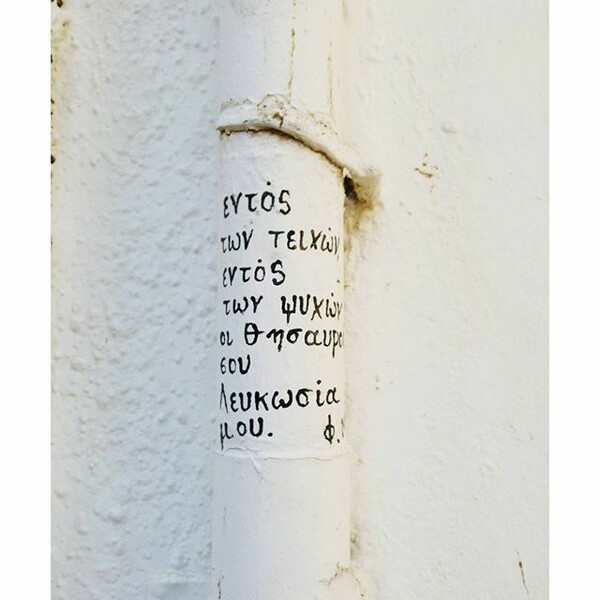 εντός
των τειχών
εντός
των ψυχών
οι θησαυρο
σου
Λευκωσία
μου. φ.